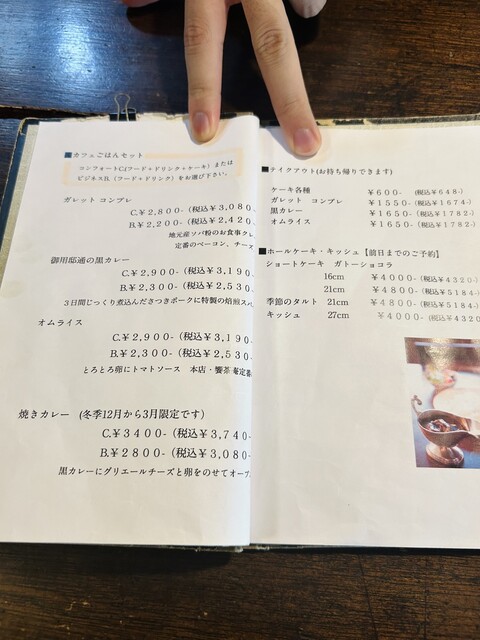 ■カフェごはんセット
コンフォートC.(フード+ドリンク+ケーキ) または
ビジネスB. (フード+ドリンク) をお選び下さい。
ガレット コンプレ
C.￥2,800-(税込￥3,080-
B.￥2,200-(税込￥2,420-
地元産ソバ粉のお食事クレ
定番のベーコン、チーズ
御用邸通の黒カレー
C.￥2,900-(税込￥3,190
B.￥2,300-(税込￥2,530-
3日間じっくり煮込んださつきポークに特製の焙煎スパ
オムライス
C.￥2,900-(税込￥3,190-
B.￥2,300-(税込￥2,530-
とろとろ卵にトマトソース 本店・饗茶庵定番
焼きカレー (冬季12月から3月限定です)
C.￥3400-(税込￥3,740-
B.￥2800-(税込￥3,080-
黒カレーにグリエールチーズと卵をのせてオーブ
■テイクアウト(お持ち帰りできます)
ケーキ各種 ￥600- (税込￥648-)
ガレット コンプレ ￥1550-(税込￥1674-)
黒カレー ￥1650-(税込￥1782-)
オムライス ￥1650-(税込￥1782-)
■ホールケーキ・キッシュ【前日までのご予約】
ショートケーキ ガトーショコラ
16cm ￥4000-(税込4320-)
21cm ￥4800-(税込￥5184-)
季節のタルト 21cm ￥4800-(税込￥5184-)
キッシュ 27cm ￥4000-(税込￥4320